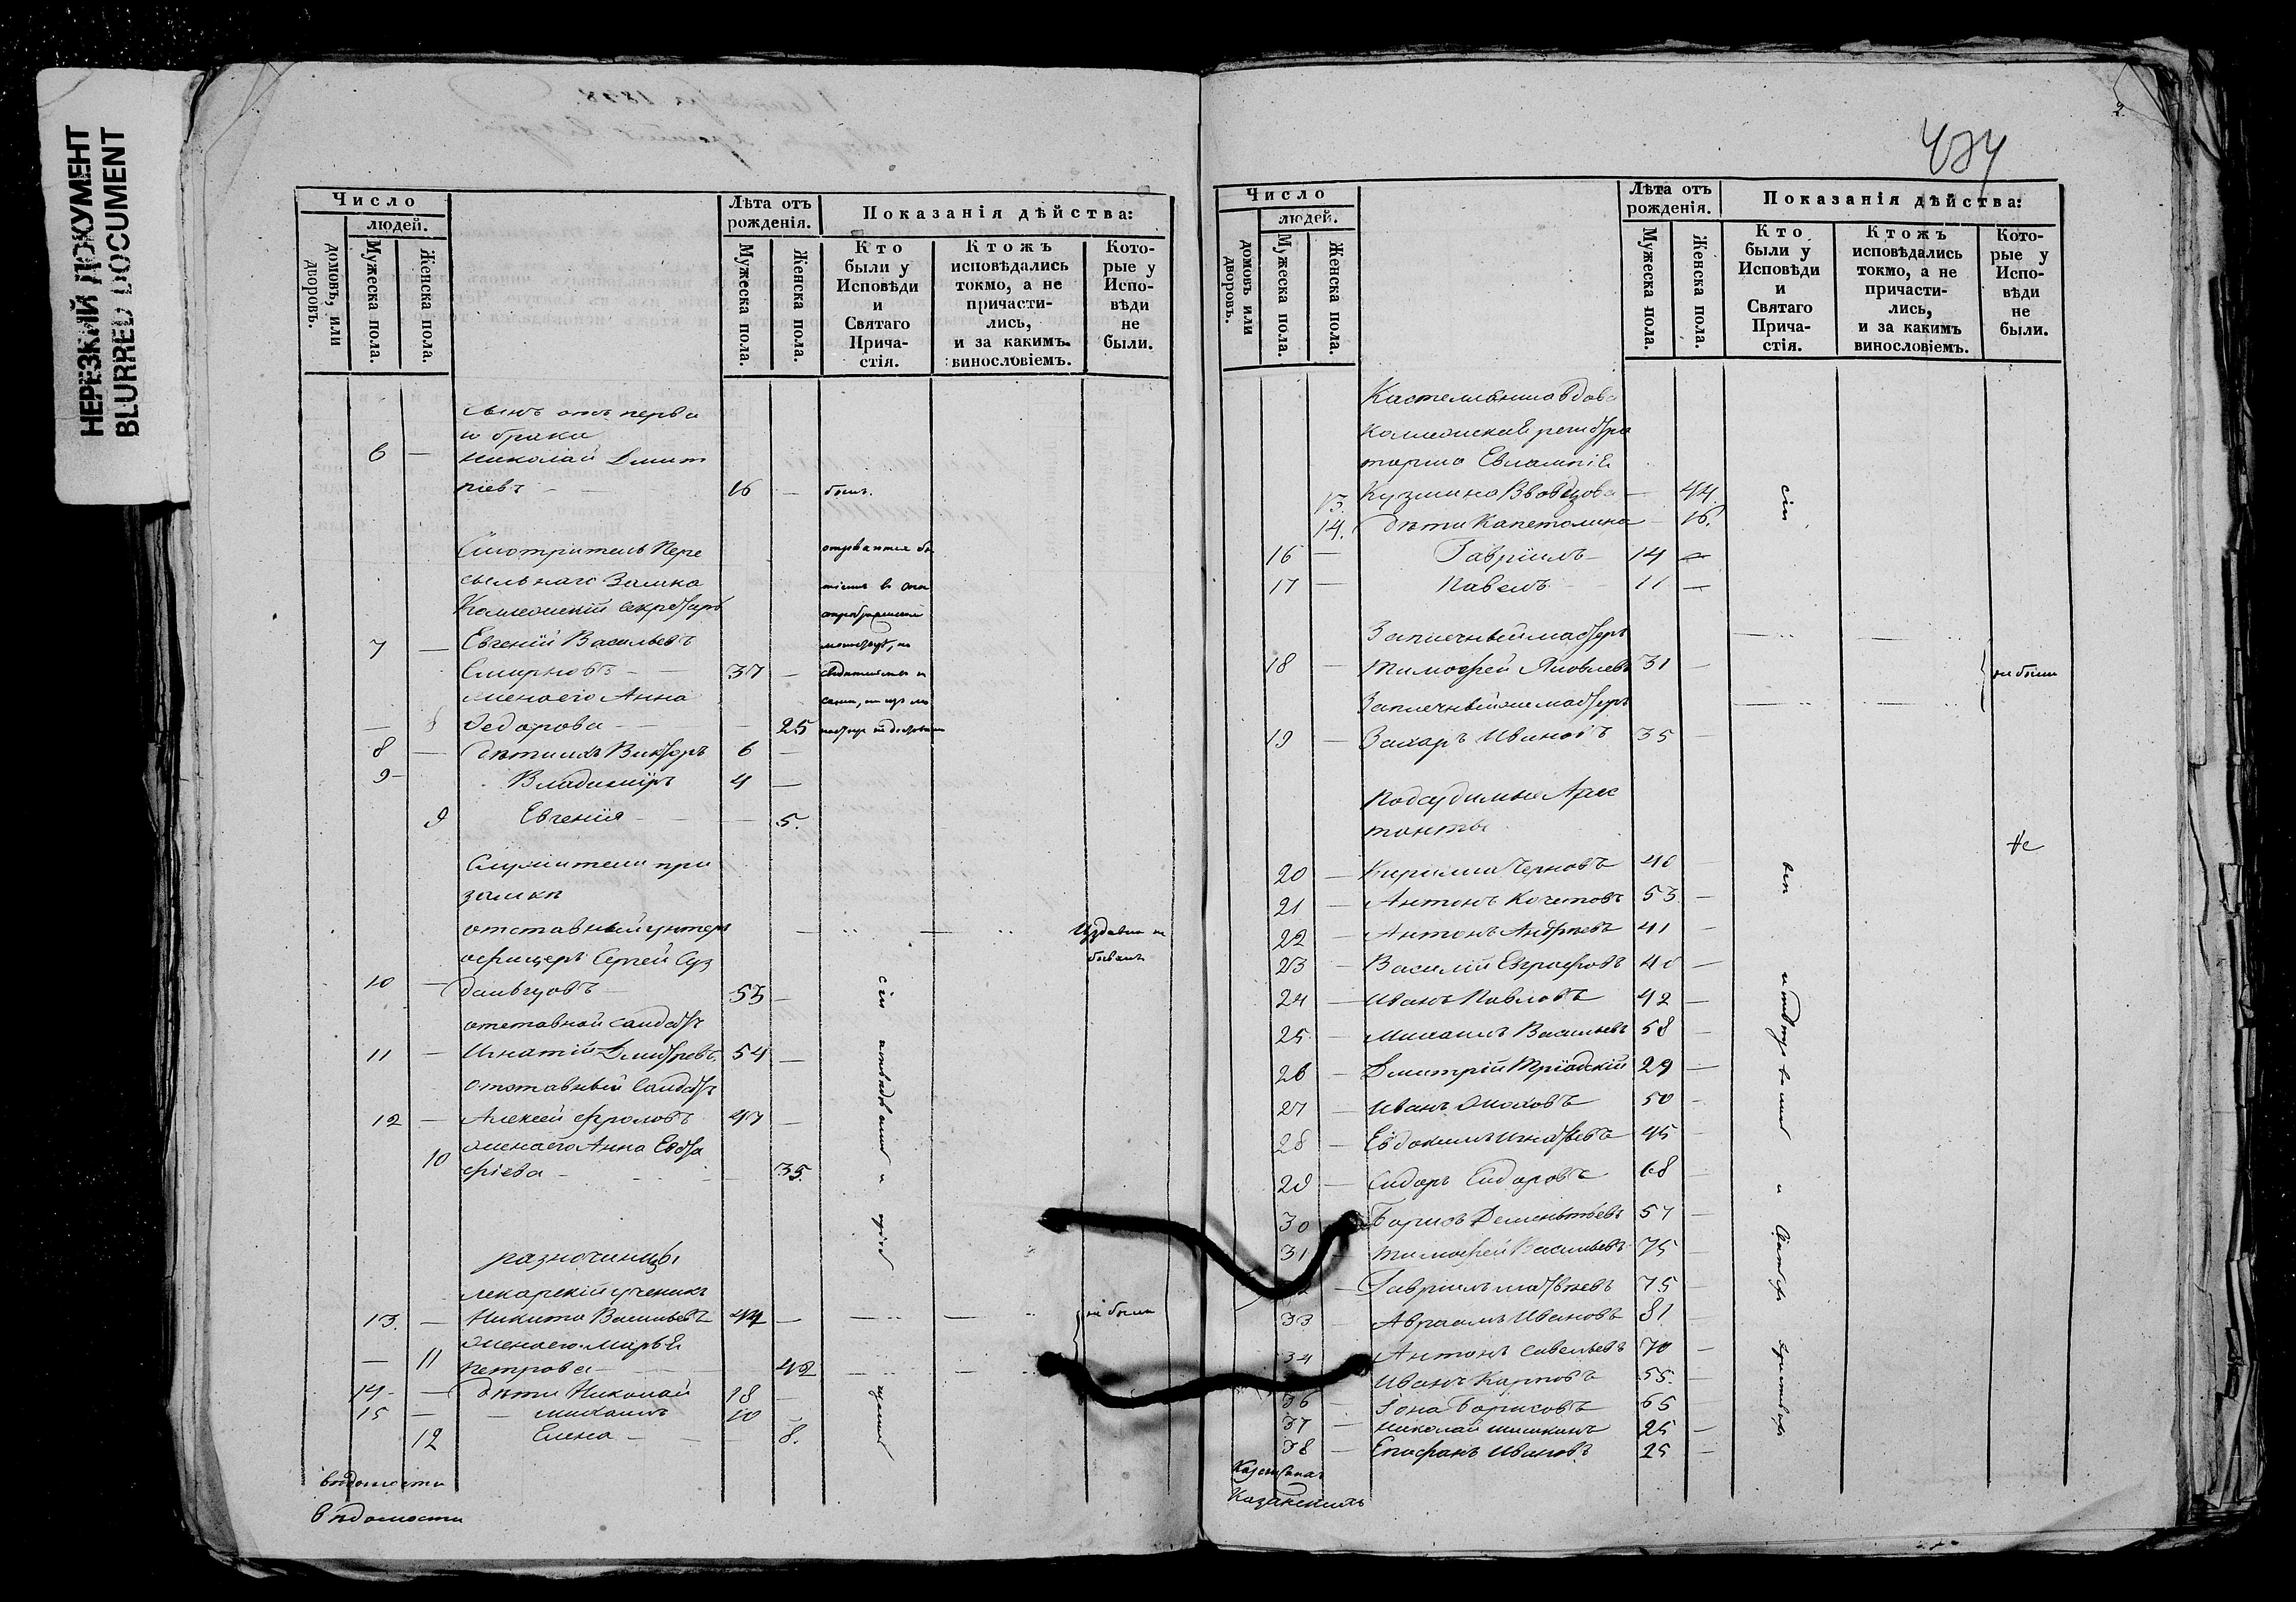 НЕРЕЗКИЙ ДОКУМЕНТ
BLURRED DOCUMENT
Число
людей.
домовъ, или дворовъ.
Мужеска пола.
Женска пола.
Лѣта отъ рожденія.
Мужеска пола.
Женска пола.
Показанія дѣйства:
Кто были у Исповѣди и Святаго Причастія.
Ктожъ исповѣдались токмо, а не причастились, и за какимъ винословіемъ.
Которые у Исповѣди не были.
сынъ отъ перва
го брака
6 — Николай Дмит
ріевъ — 16 — былъ.
Смотритель Пере
сыльнаго Замка
Коллежскій секретарь
7 — Евгеній Васильевъ
Смирновъ — 37 —
жена его Анна
— 8 Федорова — 25
8 — дѣти ихъ Викторъ 6 —
9 — Владиміръ 4 —
9 Евгенія — 5.
Служители при
замкѣ
отставный унтеръ Издавна не
офицеръ Сергей Суз бывалъ
10 — дальцовъ — 53 —
отставной солдатъ
11 — Игнатій Дмитревъ 54 —
Отставный Солдатъ
12 — Алексей Фроловъ 47 —
10 жена его Анна Евста
фіева — 35.
сіи исповѣдывались и
разночинцы
лекарскій ученикъ
13. — Никита Васильевъ 44 — не были
жена его Марья
— 11 Петрова — 42
14 — дѣти Николай 18 —
15 — Михаилъ 10 —
12 Елена — 8.
вѣдомости
вѣдомости
2.
434
Число
людей.
домовъ или дворовъ.
Мужеска пола.
Женска пола.
Лѣта отъ рожденія.
Мужеска пола.
Женска пола.
Показанія дѣйства:
Кто были у Исповѣди и Святаго Причастія.
Ктожъ исповѣдались токмо, а не причастились, и за какимъ винословіемъ.
Которые у Исповѣди не были.
Кастелянша вдова
Коллежская регистра
торша Евлампія
13. Кузмина Вдовцова — 44. сіи
14. дѣти Капетолина — 16.
16 — Гавріилъ — 14 —
17 — Павелъ — 11 —
Заплечный мастеръ
18 — Тимофей Яковлевъ 31 — не были
Заплечный же мастеръ
19 — Захаръ Ивановъ 35 —
Подсудимые Арес
танты
Не
20 — Кирилла Черновъ 40 —
21 — Антонъ Кочетовъ 53 —
22 — Антонъ Андреевъ 41 —
23 — Василій Евграфовъ 40 —
24 — Иванъ Павловъ 42 —
25 — Михаилъ Васильевъ 58 —
26 — Дмитрій 29 —
27 — Иванъ 50 —
28 — Евдокимъ Игнатьевъ 45 —
29 — Сидоръ Сидоровъ 68 —
30 — Борисъ Дементьевъ 57 —
31 — Тимофей Васильевъ 75 —
— Гавріилъ Матвеевъ 75 —
33 — Авраамъ Ивановъ 81
34 — Антонъ Савельевъ 70 —
Иванъ Карповъ 55.
36 — Іона Борисовъ 65 —
37 — Николай Шишкинъ 25 —
38 — Епифанъ Ивановъ 25 —
Казанскихъ